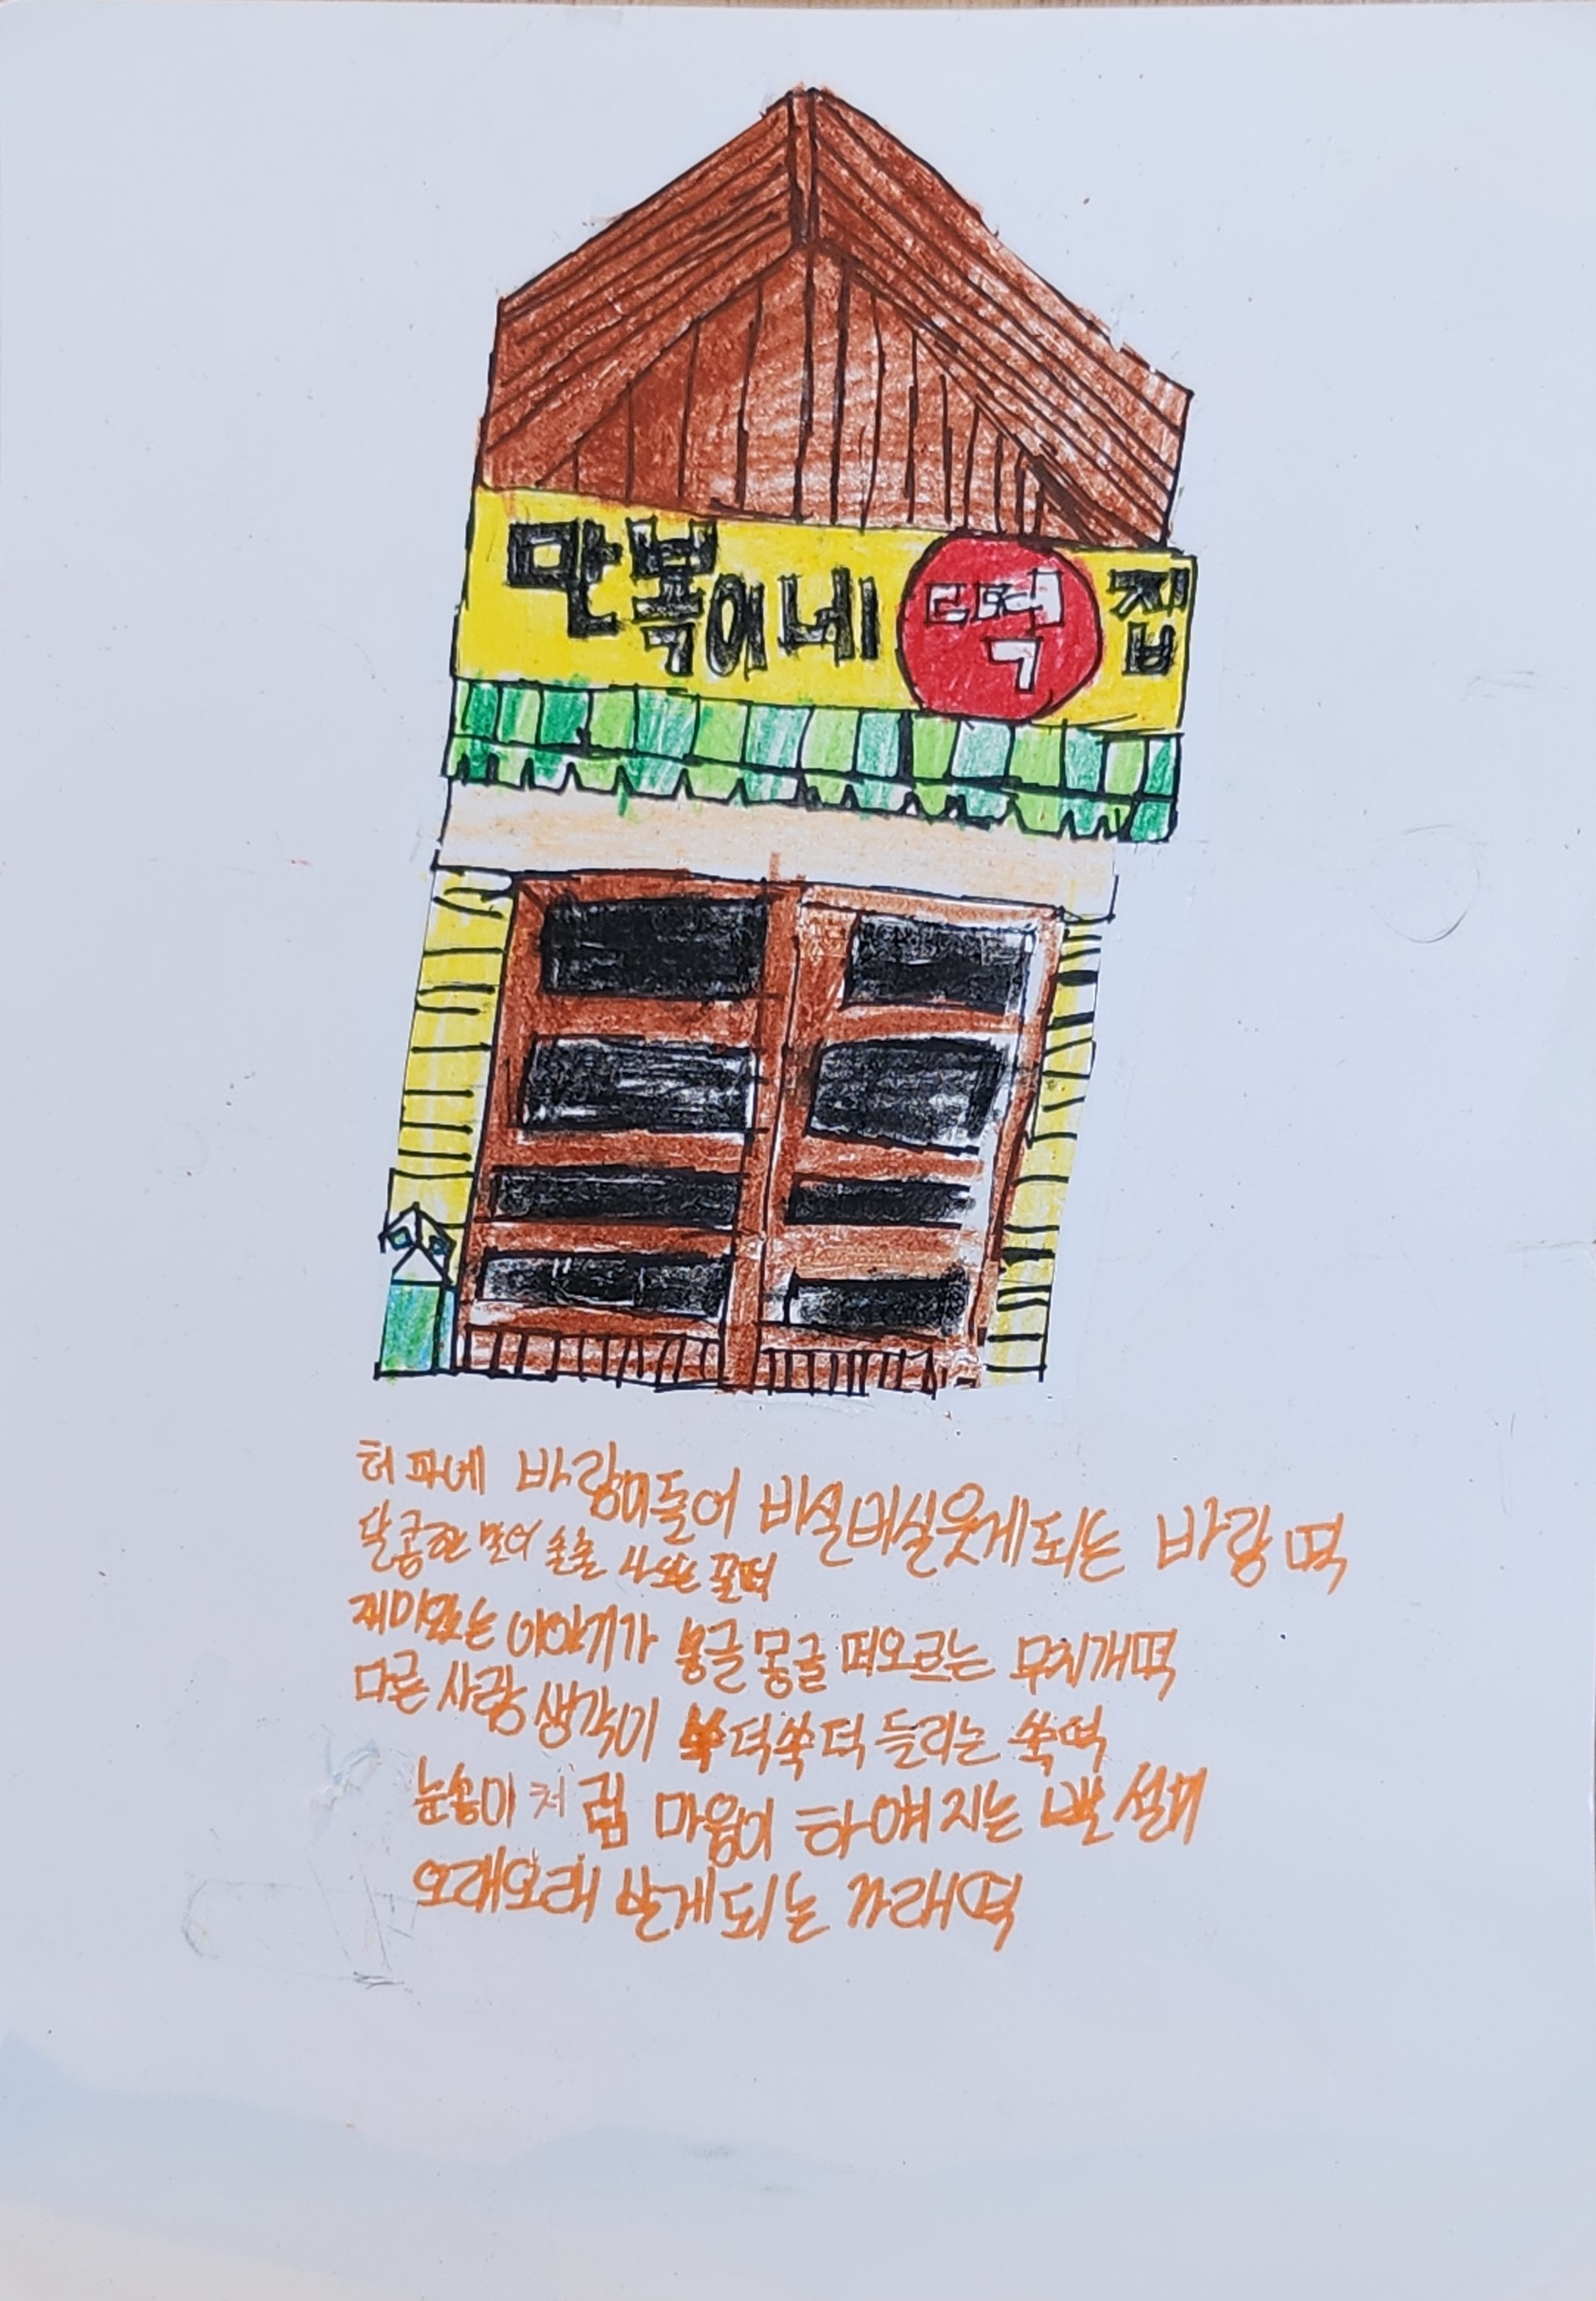 만복이네 떡 집
허파에 바람이들어 비실비실웃게되는 바람떡
달콤한 말이 술술 나오는 꿀떡
재미있는 이야기가 몽글몽글 떠오르는 무지개떡
다른 사람 생각이 쑥덕쑥덕 들리는 쑥떡
눈송이처럼 마음이 하얘지는 백설기
오래오래 살게되는 가래떡